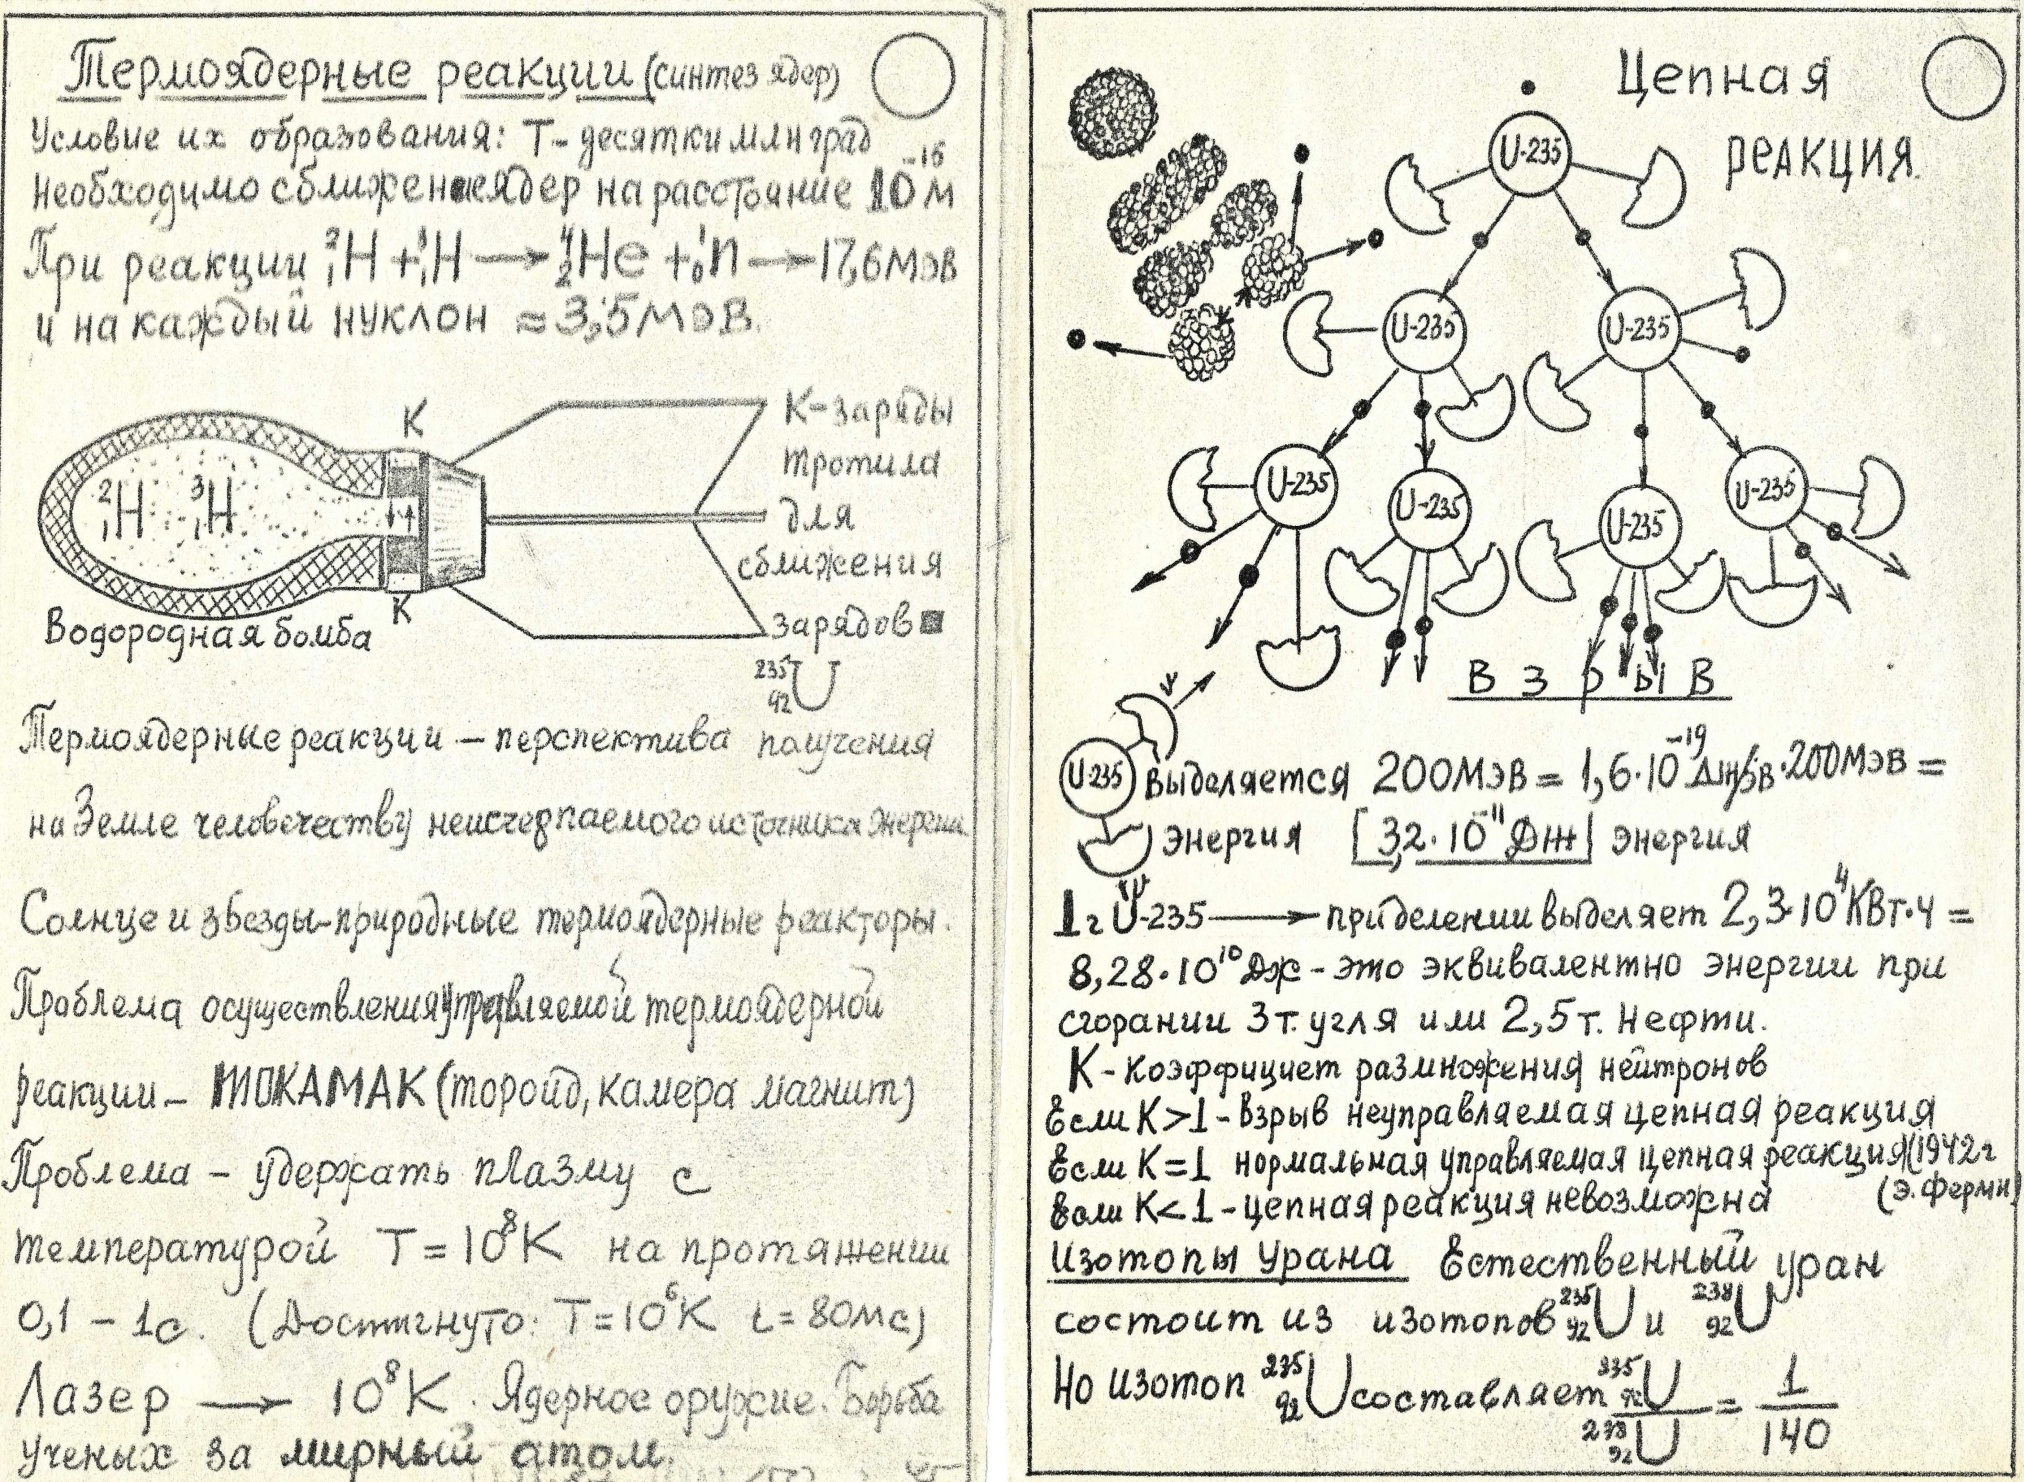 Термоядерные реакции (синтез ядер)
Условие их образования: Т- десятки млн град
Необходимо сближение ядер на расстояние 10⁻¹⁵ м
При реакции ²₁H + ³₁H → ⁴₂He + ¹₀n → 17,6 МэВ
и на каждый нуклон ≈ 3,5 МэВ.
К
К-заряды
тротила
²₁H ³₁H
для
сближения
К
зарядов
Водородная бомба
²³⁵₉₂U
Термоядерные реакции – перспектива получения
на Земле человечеству неисчерпаемого источника энергии
Солнце и звезды-природные термоядерные реакторы.
Проблема осуществления управляемой термоядерной
реакции – ТОКАМАК (тороид, камера магнит)
Проблема – удержать плазму с
температурой T = 10⁸К на протяжении
0,1 – 1с. (Достигнуто: T = 10⁶К t = 80мс)
Лазер → 10⁸К. Ядерное оружие. Борьба
ученых за мирный атом.
Цепная
реакция.
U-235
U-235 U-235
U-235 U-235 U-235 U-235
ВЗРЫВ
U-235 Выделяется 200МэВ = 1,6·10⁻¹⁹ Дж/эв·200МэВ =
энергия [3,2·10⁻¹¹ Дж] энергия
1г U-235 → при делении выделяет 2,3·10⁴КВт·ч =
8,28·10¹⁰ Дж - это эквивалентно энергии при
сгорании 3т. угля или 2,5т. Нефти.
К - Коэффициет размножения нейтронов
Если К>1 - Взрыв неуправляемая цепная реакция
Если К=1 нормальная управляемая цепная реакция (1942г
Если К<1 - цепная реакция невозможна (Э.Ферми)
Изотопы Урана Естественный уран
состоит из изотопов ²³⁵₉₂U и ²³⁸₉₂U
Но изотоп ²³⁵₉₂U составляет ²³⁵₉₂U / ²³⁸₉₂U = 1/140